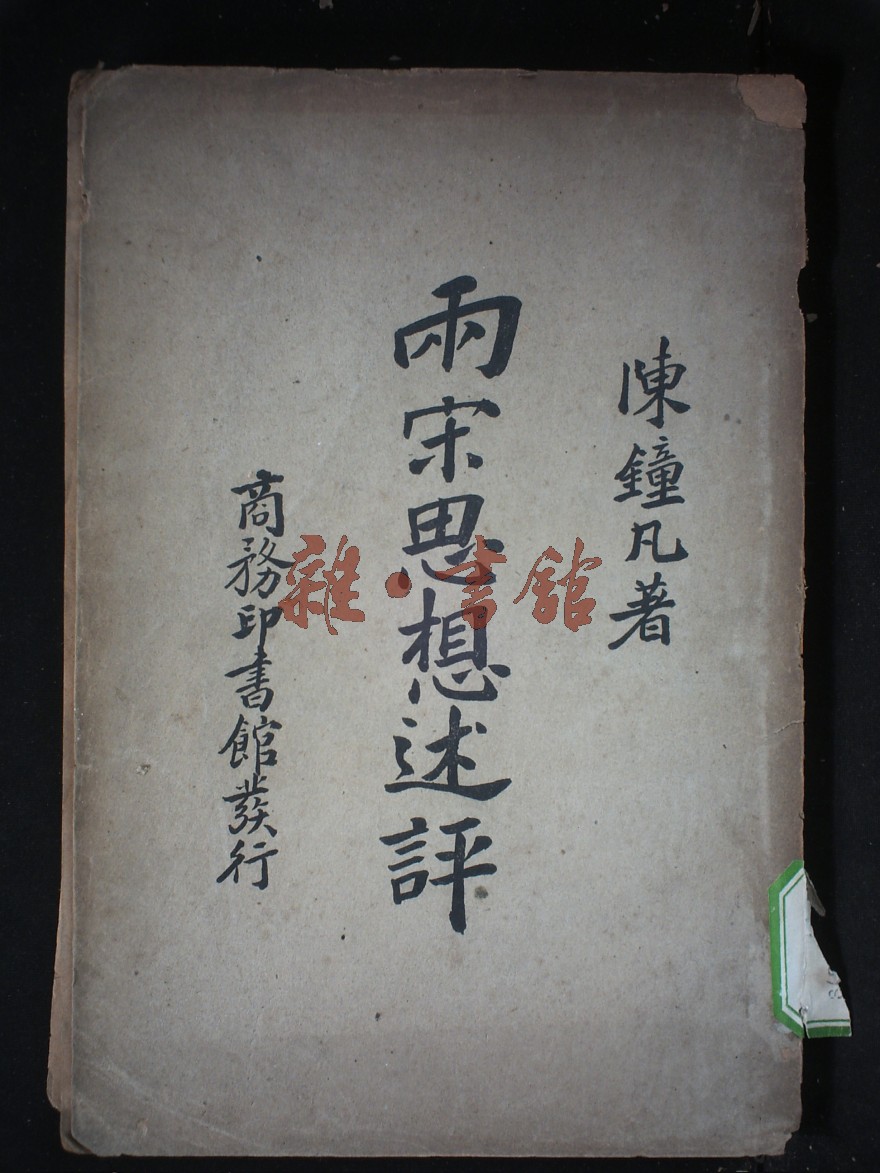 陳鐘凡著
兩宋思想述評
商務印書館發行
雜·書館